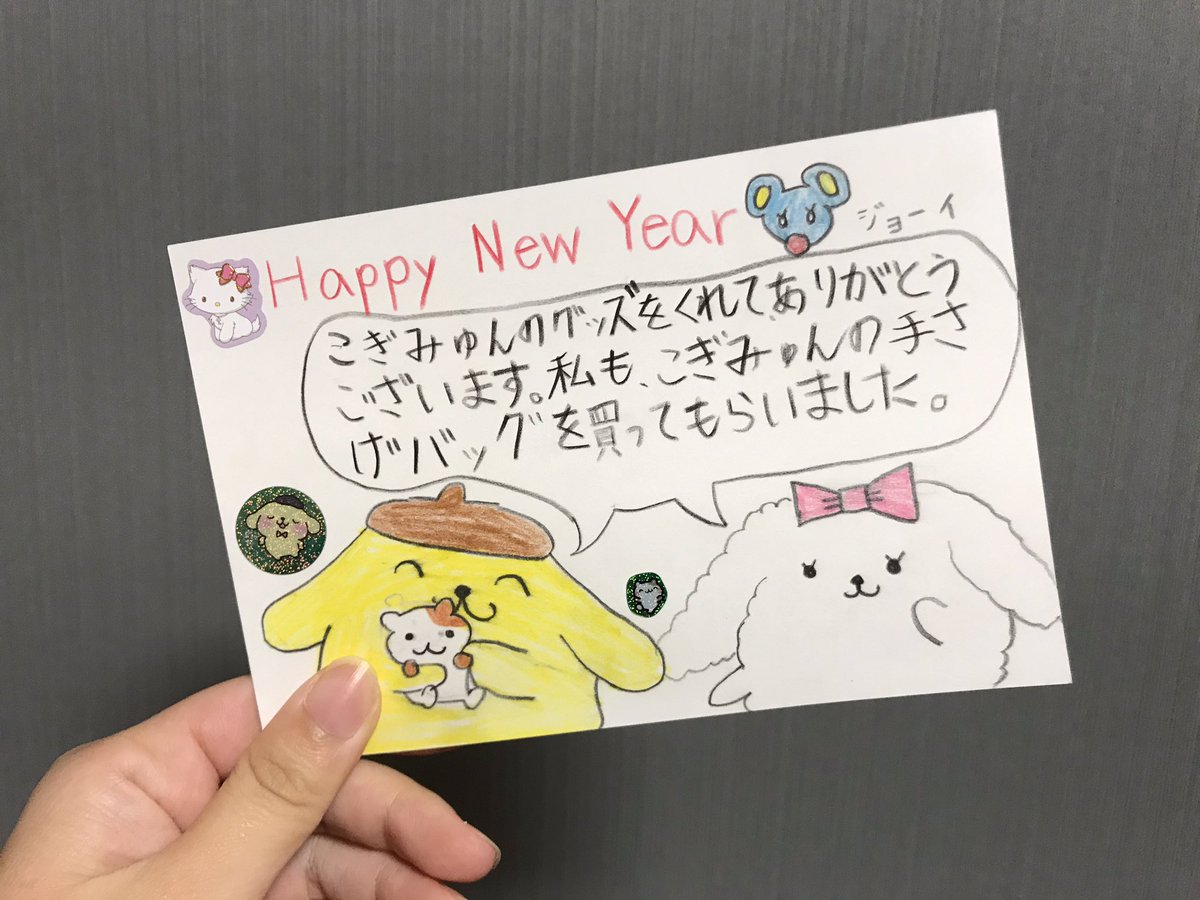 Happy New Year
ジョーイ
こぎみゅんのグッズをくれて、ありがとう
ございます。私も、こぎみゅんの手さ
げバッグを買ってもらいました。